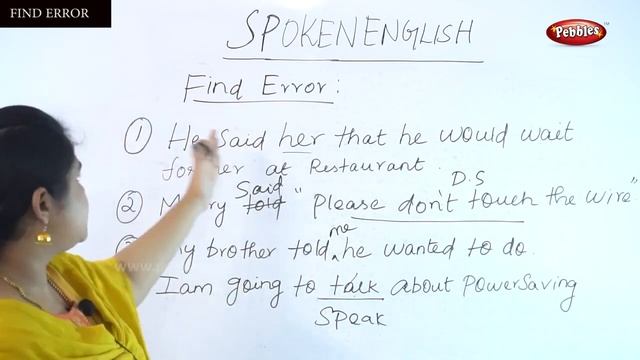 FIND ERROR
Pebbles
SPOKEN ENGLISH
Find Error:
① He said her that he would wait
for her at Restaurant.
said D.S
② told " Please don't touch the wire"
me
brother told he wanted to do.
I am going to talk about Power Saving
Speak